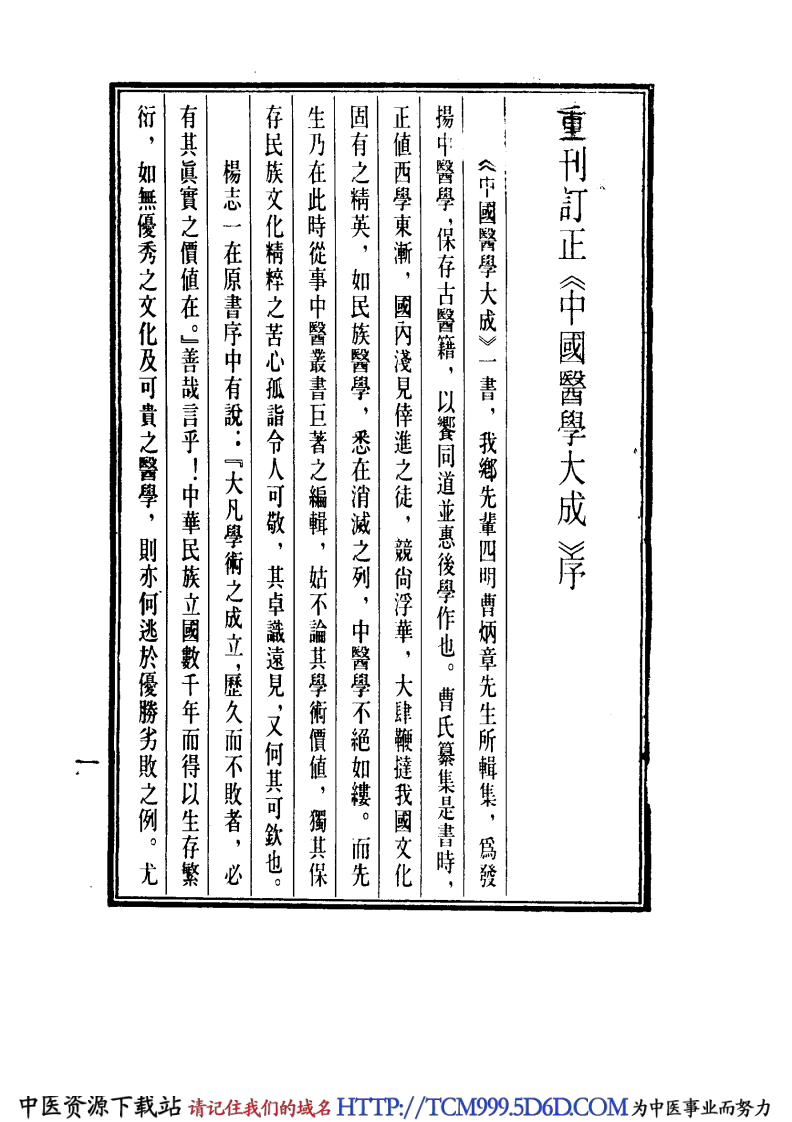 重刊訂正《中國醫學大成》序
《中國醫學大成》一書，我鄉先輩四明曹炳章先生所輯集，爲發
揚中醫學，保存古醫籍，以饗同道並惠後學作也。曹氏纂集是書時，
正値西學東漸，國內淺見倖進之徒，競尙浮華，大肆鞭撻我國文化
固有之精英，如民族醫學，悉在消滅之列，中醫學不絕如縷。而先
生乃在此時從事中醫叢書巨著之編輯，姑不論其學術價値，獨其保
存民族文化精粹之苦心孤詣令人可敬，其卓識遠見，又何其可欽也。
楊志一在原書序中有說：『大凡學術之成立，歷久而不敗者，必
有其眞實之價値在。』善哉言乎！中華民族立國數千年而得以生存繁
衍，如無優秀之文化及可貴之醫學，則亦何逃於優勝劣敗之例。尤
一
中医资源下载站 请记住我们的域名 HTTP://TCM999.5D6D.COM 为中医事业而努力